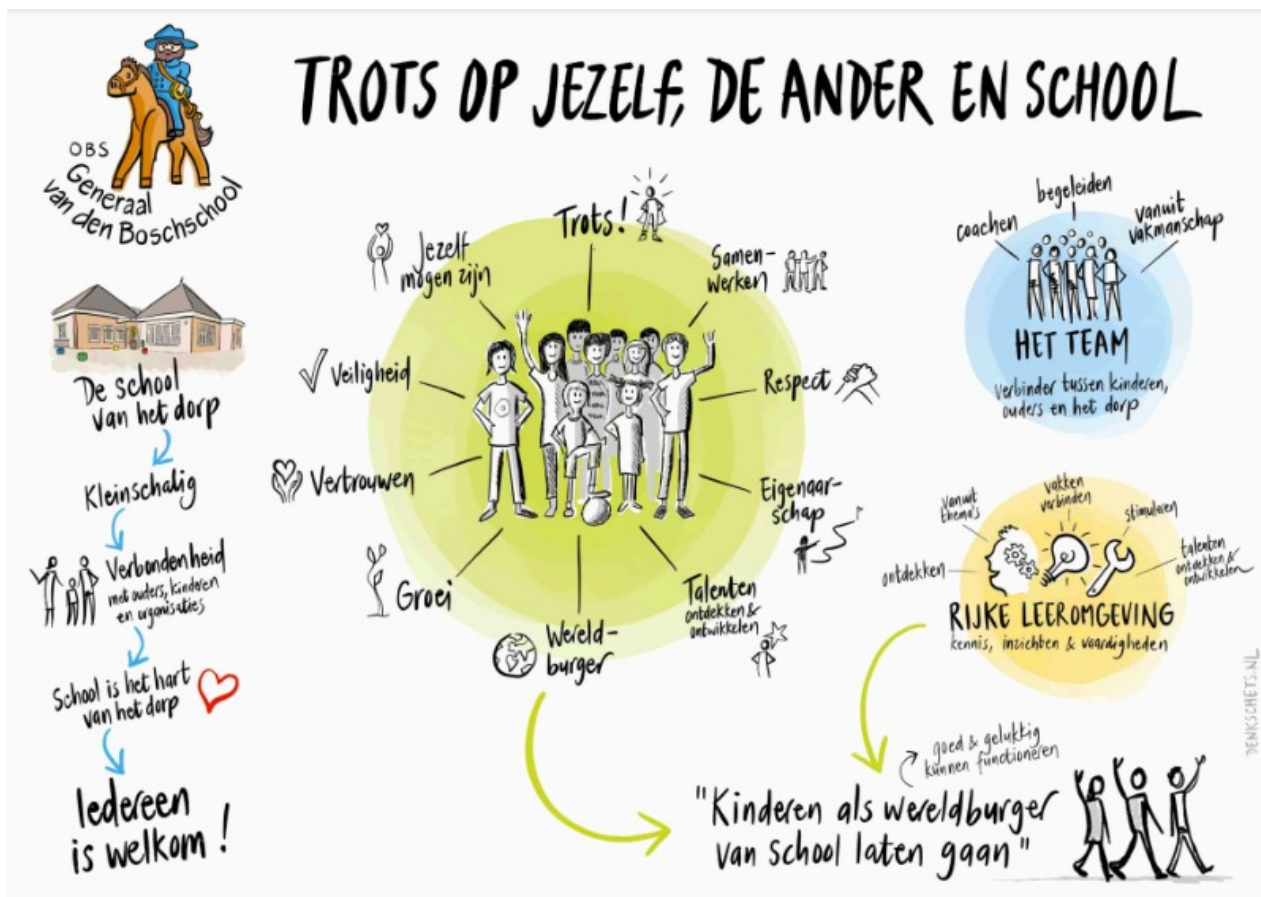 TROTS OP JEZELF, DE ANDER EN SCHOOL
OBS
Generaal
van den Boschschool
De school
van het dorp
Kleinschalig
Verbondenheid
met ouders, kinderen
en organisaties
School is het hart
van het dorp
Iedereen
is welkom!
Trots!
Samen-
werken
Respect
Eigenaar-
schap
Talenten
ontdekken &
ontwikkelen
Wereld-
burger
Groei
Vertrouwen
Veiligheid
Jezelf
mogen zijn
coachen
begeleiden
vanuit
vakmanschap
HET TEAM
Verbinder tussen kinderen,
ouders en het dorp
ontdekken
vanuit
thema's
vakken
verbinden
stimuleren
talenten
ontdekken &
ontwikkelen
RIJKE LEEROMGEVING
kennis, inzichten & vaardigheden
goed & gelukkig
kunnen functioneren
"Kinderen als wereldburger
van school laten gaan"
DENKSCHETS.NL